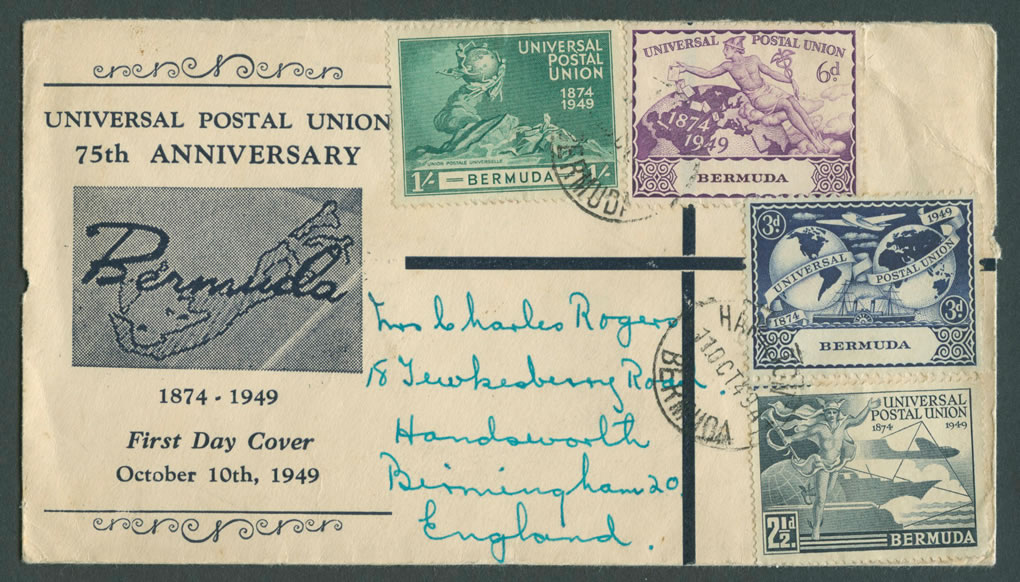 UNIVERSAL POSTAL UNION
75th ANNIVERSARY
Bermuda
1874 - 1949
First Day Cover
October 10th, 1949
UNIVERSAL
POSTAL
UNION
1874
1949
UNION POSTALE UNIVERSELLE
1/- BERMUDA 1/-
UNIVERSAL POSTAL UNION
6d
1874
1949
BERMUDA
3d. 1949
UNIVERSAL POSTAL UNION
1874 3d
BERMUDA
UNIVERSAL
POSTAL UNION
1874 1949
2½d. BERMUDA
BERMUDA
11 OCT 49
BERMUDA
Mrs Charles Rogers
18 Tewkesberry Road.
Handsworth
Birmingham 20
England.